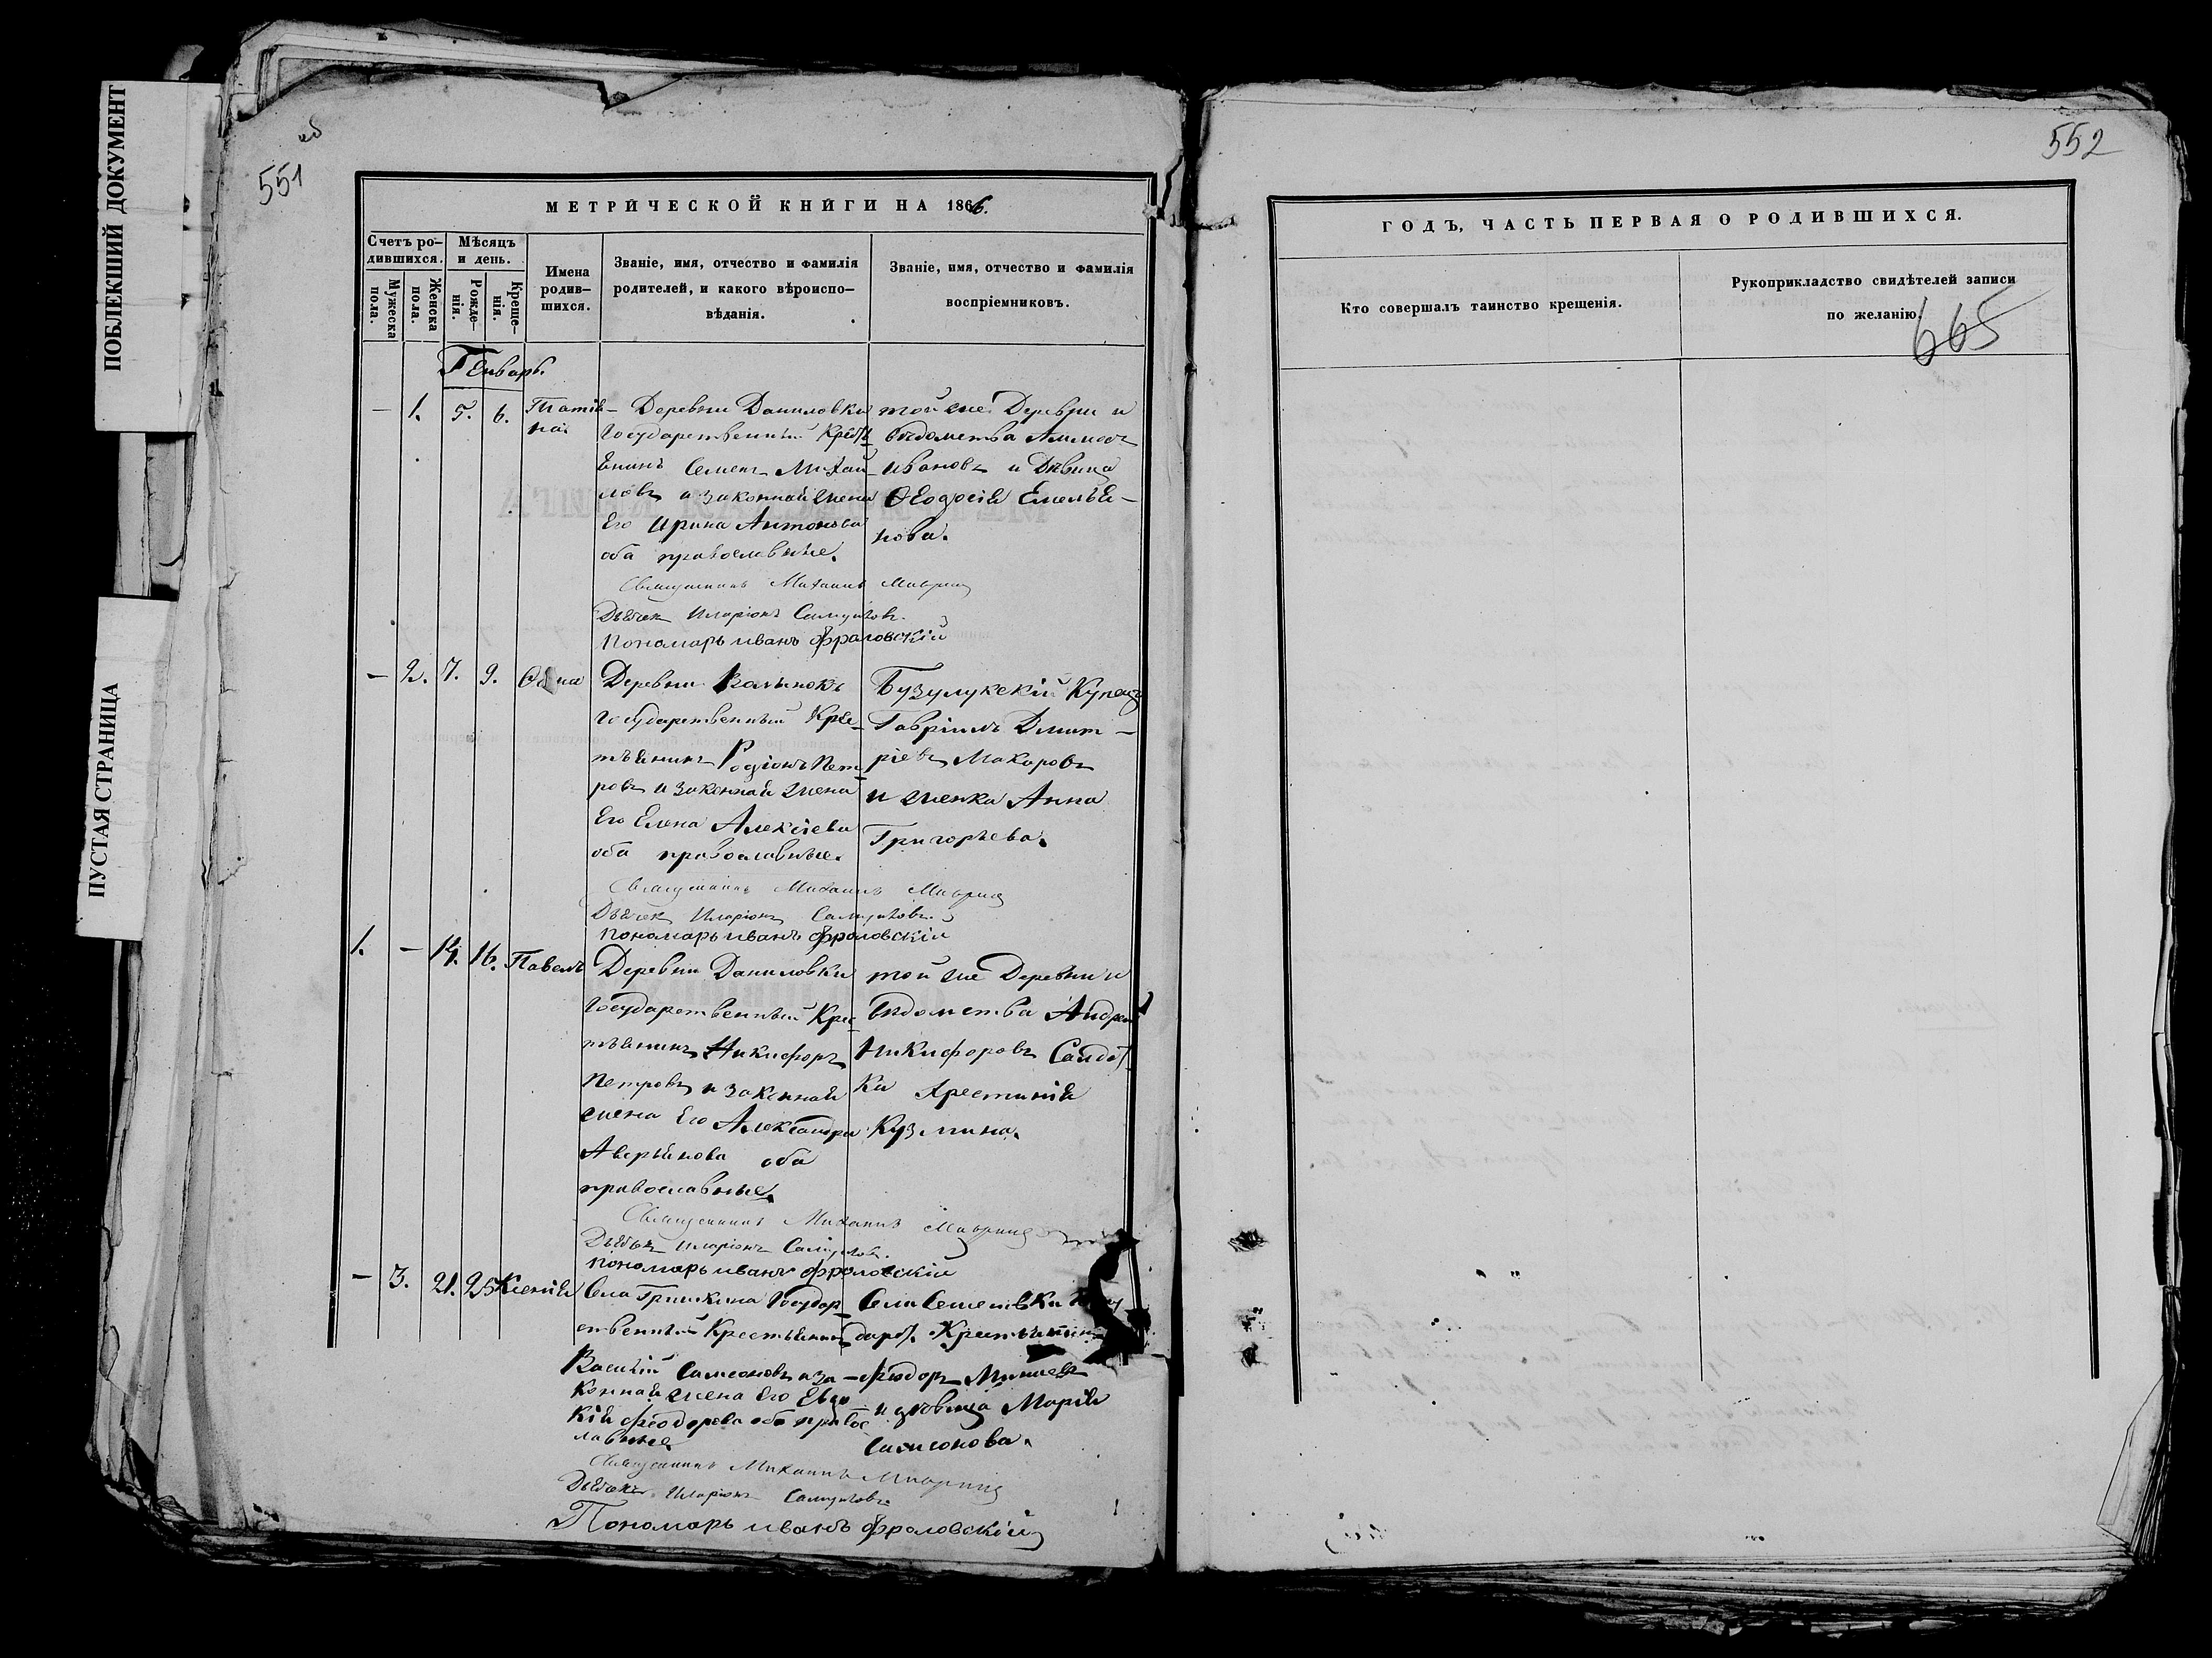 ПОБЛЕКШИЙ ДОКУМЕНТ
ПУСТАЯ СТРАНИЦА
об
551
МЕТРИЧЕСКОЙ КНИГИ НА 1866.
Счетъ ро-
дившихся.
Мѣсяцъ
и день.
Мужеска
пола.
Женска
пола.
Рожде-
нія.
Креще-
нія.
Имена
родив-
шихся.
Званіе, имя, отчество и фамилія
родителей, и какого вѣроиспо-
вѣданія.
Званіе, имя, отчество и фамилія
воспріемниковъ.
Генварь.
— 1. 5. 6. Татiя-
на
Деревни Даниловки
Государственный Крѣстъ
янинъ Семенъ Михай
ловъ и законная жена
Его Ирина Антонова
оба православные.
той же Деревни и
вѣдомства
Ивановъ и Дѣвица
Ѳеодосія Емелья-
нова.
Священникъ Михаилъ
Дьячек Иларіонъ
Пономарь Иванъ Фроловскій
— 2. 7. 9.
Деревни
Государственный Кре-
тьянинъ Родіонъ Пет
ровъ и законная жена
Его Елена Алексіева
оба православные.
Бузулукскій Купецъ
Гавріилъ Дмит-
ріевъ Макаровъ
и женка Анна
Григорьева.
Священникъ Михаилъ
Дьячек Иларіонъ
Пономарь Иванъ Фроловскій
1. — 14. 16. Павелъ
Деревни Даниловки
Государственный Кре
тьянинъ Никифоръ
Петровъ и законная
жена Его Александра
Аверьянова оба
православные.
той же Деревни и
вѣдомства Андрей
Никифоровъ Салдат
ка Хрестинія
Кузмина.
Священникъ Михаилъ
Дьячекъ Иларіонъ
Пономарь Иванъ Фроловскій
— 3. 21. 25 Ксенія
Села Гришкина Государ
ственный Крестьянинъ
Василій Самсоновъ и за-
конная жена Его Евдо
кія Феодорова оба правос
лавные
Села
дарст. Крестьянинъ
Федоръ
и дѣвица Марія
Самсонова.
Священникъ Михаилъ
Дьячекъ Иларіонъ
Пономарь Иванъ Фроловскій
552
ГОДЪ, ЧАСТЬ ПЕРВАЯ О РОДИВШИХСЯ.
Кто совершалъ таинство крещенія.
Рукоприкладство свидѣтелей записи
по желанію.
665